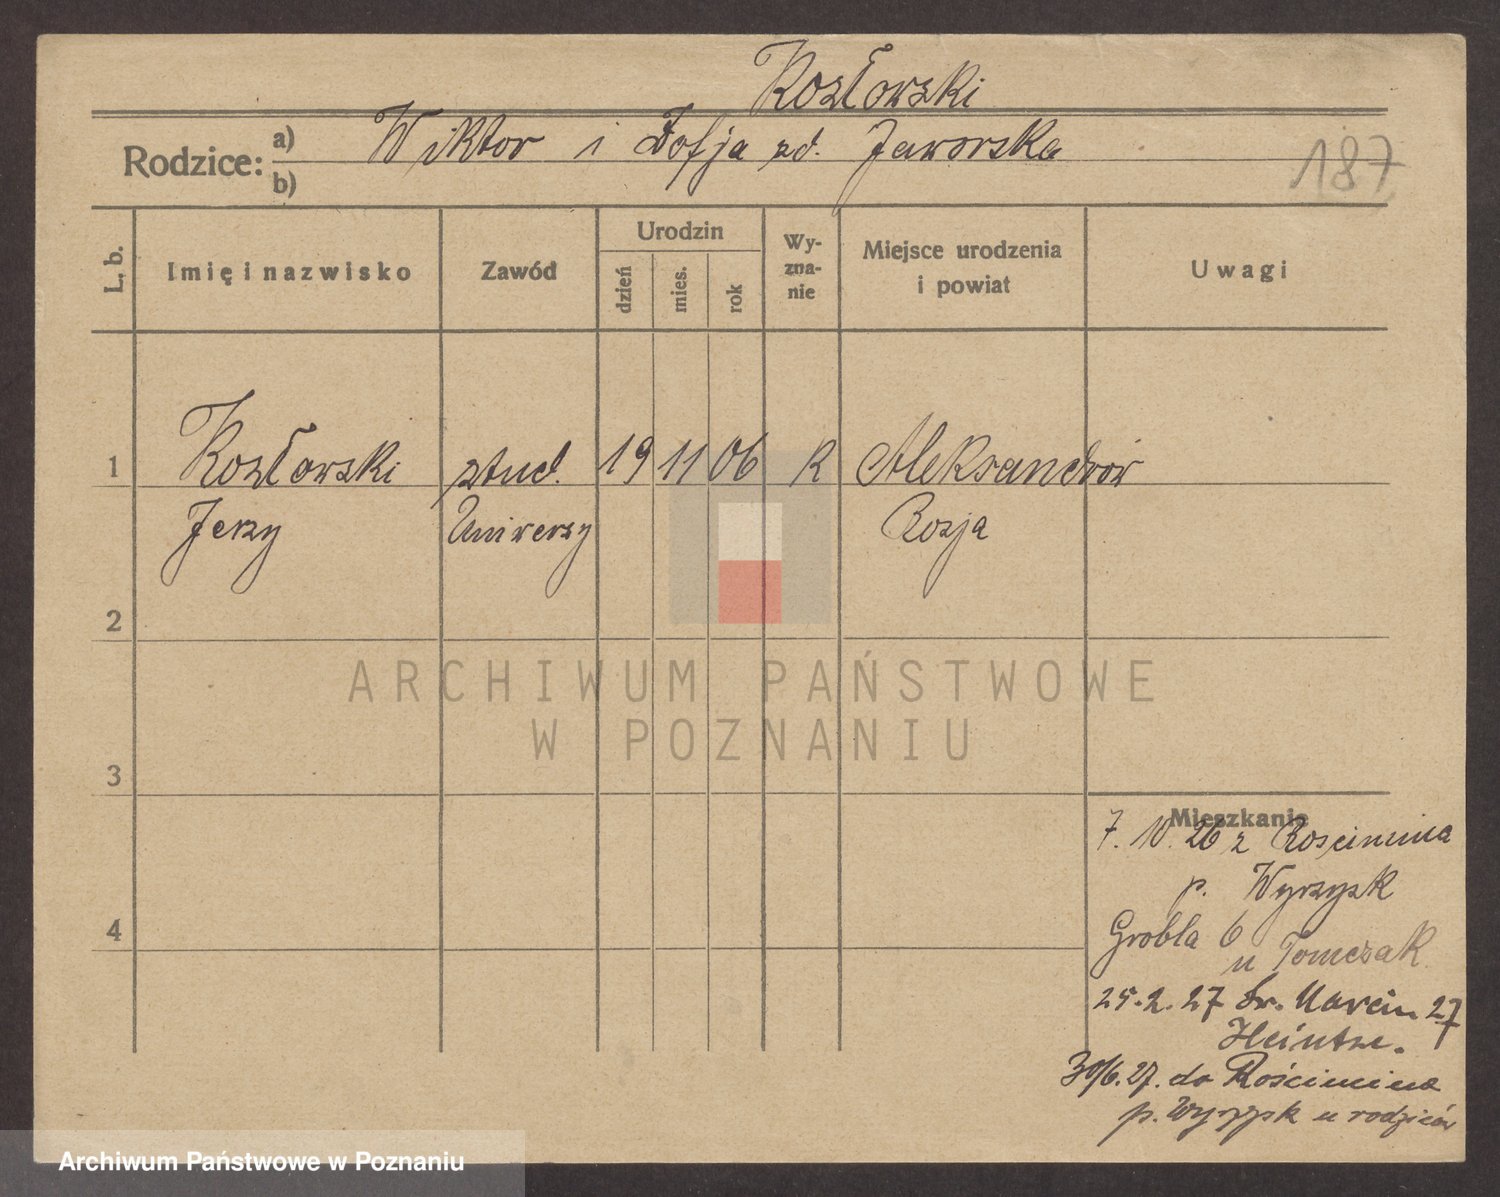 Kozłowski
Rodzice: a) b) Wiktor i Zofja zd. Jaworska
187
L. b.
Imię i nazwisko
Zawód
Urodzin
dzień
mies.
rok
Wy-
zna-
nie
Miejsce urodzenia
i powiat
Uwagi
1 Kozłowski stud. 19 11 06 R Aleksandrów
Jerzy Uniwerzy Rosja
2
3
4
ARCHIWUM PAŃSTWOWE
W POZNANIU
Mieszkanie
7. 10. 26 z Rościmina
p. Wyrzysk
Grobla 6
u Tomczak
25.2.27 Św. Marcin 27
Heintze.
30/6.27. do Rościmina
p. Wyrzysk u rodziców
Archiwum Państwowe w Poznaniu